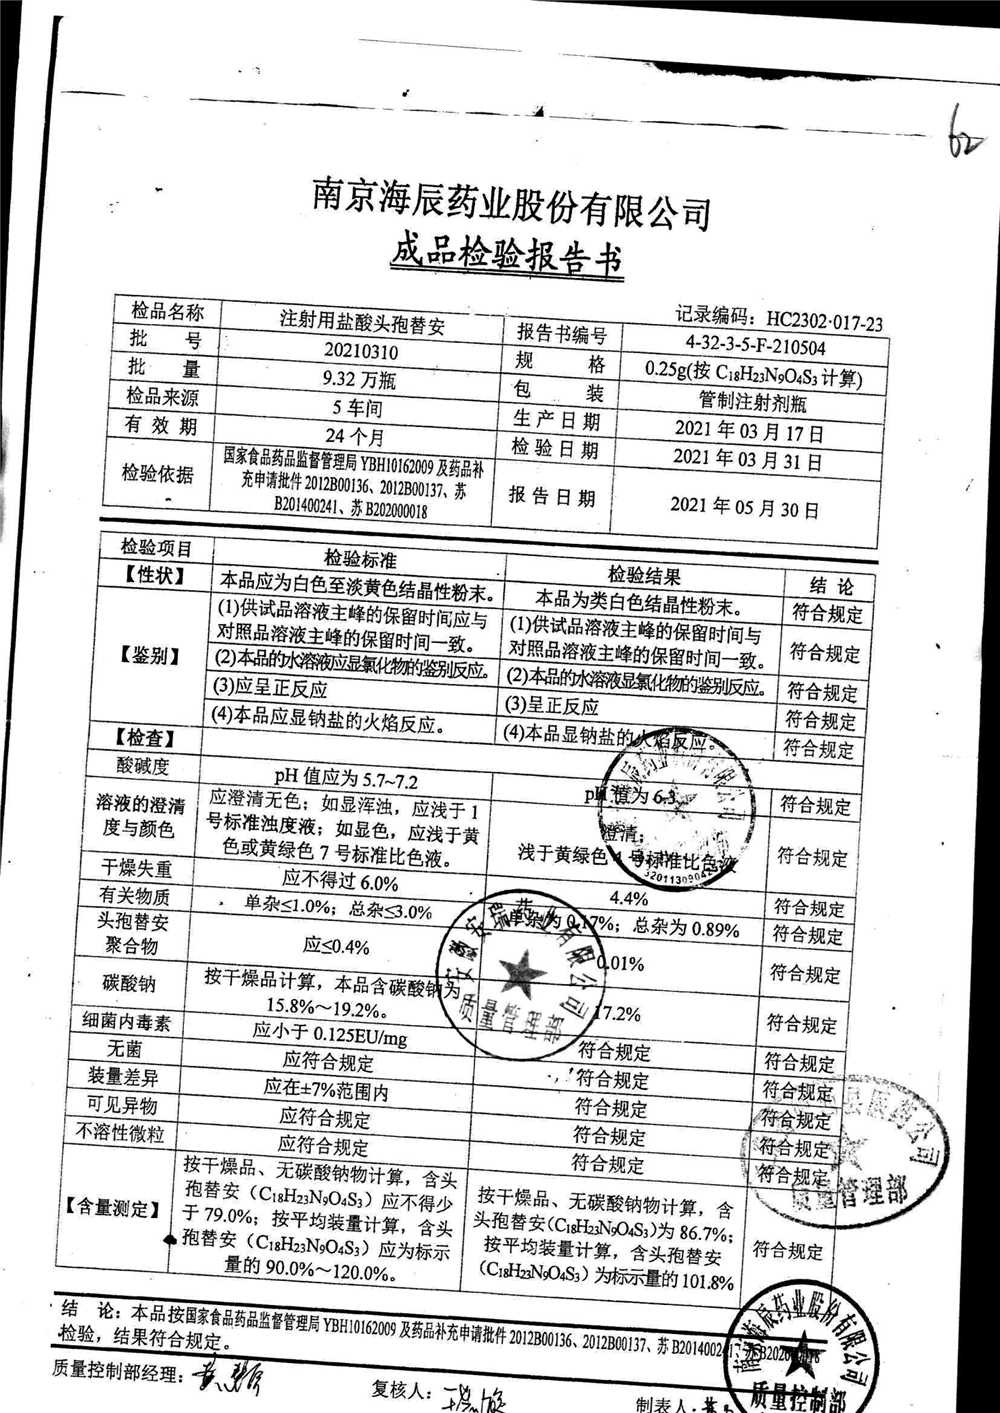 62
南京海辰药业股份有限公司
成品检验报告书
记录编码：HC2302·017-23
检品名称 注射用盐酸头孢替安 报告书编号 4-32-3-5-F-210504
批 号 20210310 规 格 0.25g(按 C₁₈H₂₃N₉O₄S₃ 计算)
批 量 9.32 万瓶 包 装 管制注射剂瓶
检品来源 5 车间 生产日期 2021 年 03 月 17 日
有 效 期 24 个月 检验日期 2021 年 03 月 31 日
检验依据 国家食品药品监督管理局 YBH10162009 及药品补
充申请批件 2012B00136、2012B00137、苏
B201400241、苏 B202000018
报告日期 2021 年 05 月 30 日
检验项目 检验标准 检验结果 结 论
【性状】 本品应为白色至淡黄色结晶性粉末。 本品为类白色结晶性粉末。 符合规定
【鉴别】 (1)供试品溶液主峰的保留时间应与
对照品溶液主峰的保留时间一致。
(1)供试品溶液主峰的保留时间与
对照品溶液主峰的保留时间一致。 符合规定
(2)本品的水溶液应显氯化物的鉴别反应。 (2)本品的水溶液显氯化物的鉴别反应。 符合规定
(3)应呈正反应 (3)呈正反应 符合规定
(4)本品应显钠盐的火焰反应。 (4)本品显钠盐的火焰反应。 符合规定
【检查】
酸碱度 pH 值应为 5.7~7.2 pH 值为 6.3 符合规定
溶液的澄清
度与颜色
应澄清无色；如显浑浊，应浅于 1
号标准浊度液；如显色，应浅于黄
色或黄绿色 7 号标准比色液。
澄清；
浅于黄绿色 号标准比色液 符合规定
干燥失重 应不得过 6.0% 4.4% 符合规定
有关物质 单杂≤1.0%；总杂≤3.0% 单杂为 0.17%；总杂为 0.89% 符合规定
头孢替安
聚合物
应≤0.4% 0.01% 符合规定
碳酸钠 按干燥品计算，本品含碳酸钠为
15.8%～19.2%。
17.2% 符合规定
细菌内毒素 应小于 0.125EU/mg 符合规定 符合规定
无菌 应符合规定 符合规定 符合规定
装量差异 应在±7%范围内 符合规定 符合规定
可见异物 应符合规定 符合规定 符合规定
不溶性微粒 应符合规定 符合规定 符合规定
【含量测定】 按干燥品、无碳酸钠物计算，含头
孢替安（C₁₈H₂₃N₉O₄S₃）应不得少
于 79.0%；按平均装量计算，含头
孢替安（C₁₈H₂₃N₉O₄S₃）应为标示
量的 90.0%～120.0%。
按干燥品、无碳酸钠物计算，含
头孢替安(C₁₈H₂₃N₉O₄S₃)为 86.7%；
按平均装量计算，含头孢替安
（C₁₈H₂₃N₉O₄S₃）为标示量的 101.8%
符合规定
结 论：本品按国家食品药品监督管理局 YBH10162009 及药品补充申请批件 2012B00136、2012B00137、苏 B201400241、苏B202000018
检验，结果符合规定。
质量控制部经理：
复核人：
制表人：
安徽安瑞药业有限公司
质量管理部
质量管理部
南京海辰药业股份有限公司
质量控制部